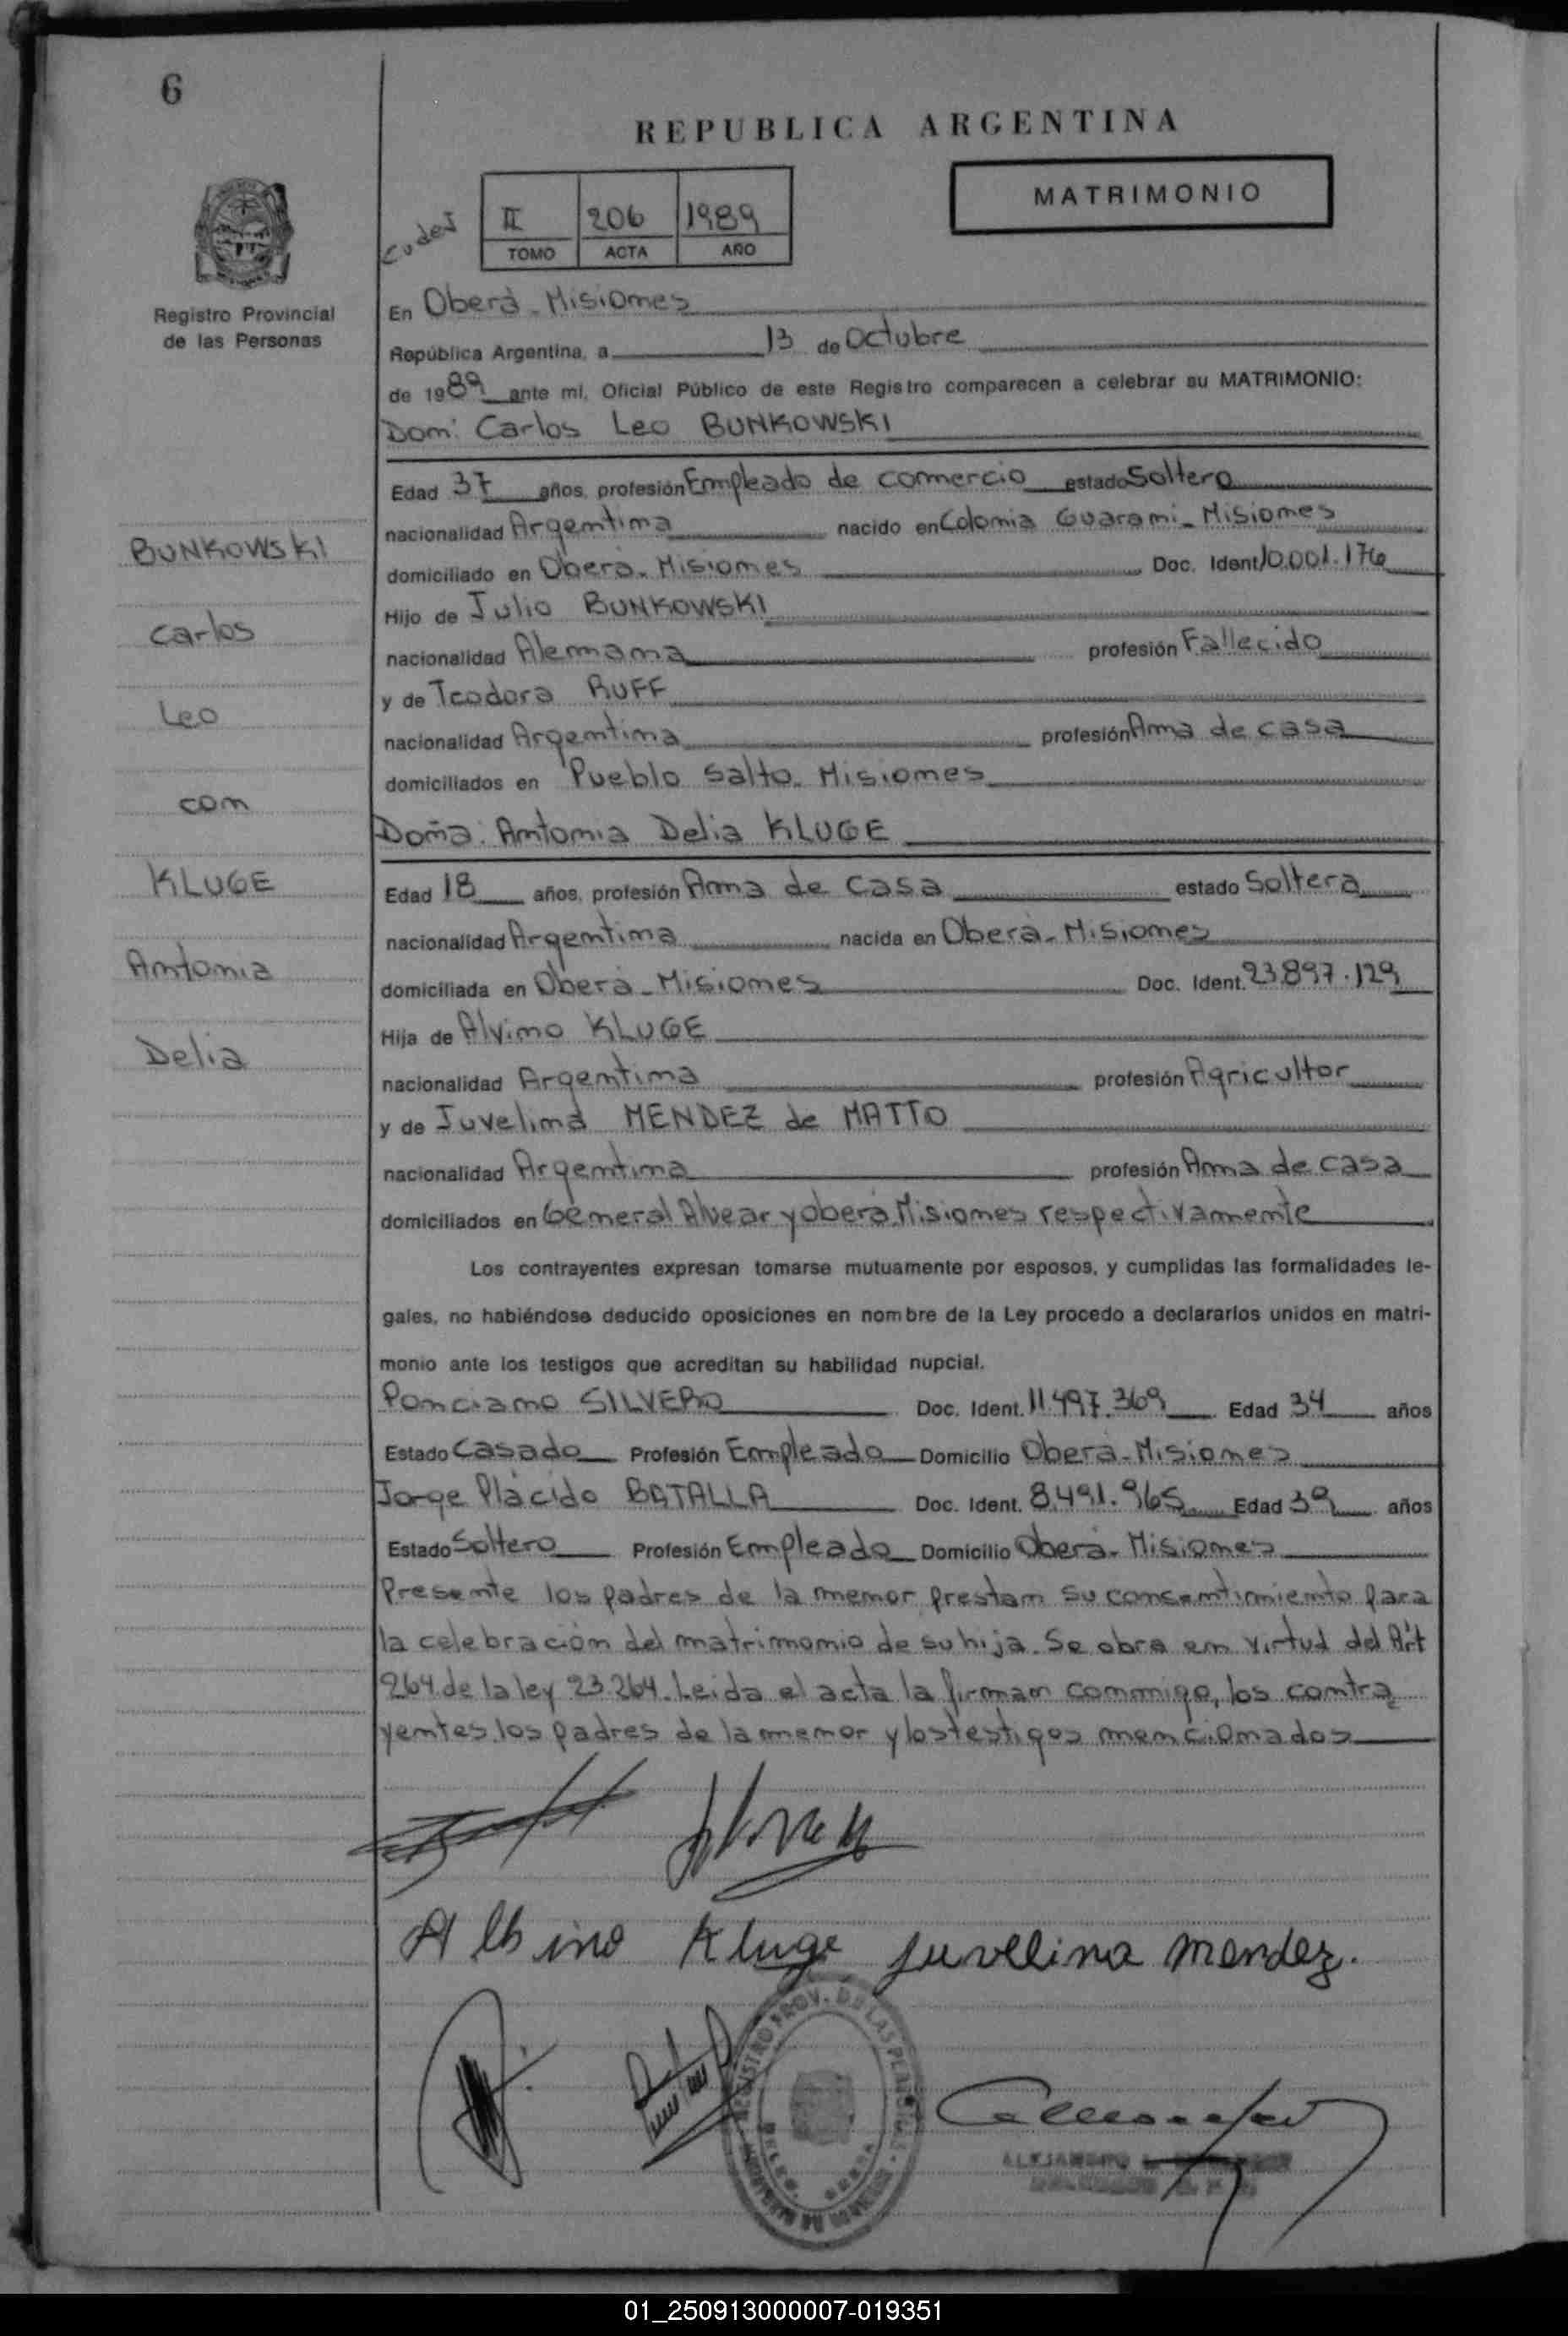 6
REPUBLICA ARGENTINA
MATRIMONIO
II 206 1989
TOMO ACTA AÑO
Registro Provincial
de las Personas
En Oberá - Misiones
República Argentina, a 13 de Octubre
de 1989 ante mí, Oficial Público de este Registro comparecen a celebrar su MATRIMONIO:
Don: Carlos Leo BUNKOWSKI
Edad 37 años, profesión Empleado de comercio estado Soltero
nacionalidad Argentina nacido en Colonia Guarani - Misiones
domiciliado en Oberá - Misiones Doc. Ident. 10.001.176
Hijo de Julio BUNKOWSKI
nacionalidad Alemana profesión Fallecido
y de Teodora RUFF
nacionalidad Argentina profesión Ama de casa
domiciliados en Pueblo Salto - Misiones
Doña: Antonia Delia KLUGE
Edad 18 años, profesión Ama de casa estado Soltera
nacionalidad Argentina nacida en Oberá - Misiones
domiciliada en Oberá - Misiones Doc. Ident. 23.897.129
Hija de Alvino KLUGE
nacionalidad Argentina profesión Agricultor
y de Juvelina MENDEZ de MATTO
nacionalidad Argentina profesión Ama de casa
domiciliados en General Alvear y Oberá Misiones respectivamente
Los contrayentes expresan tomarse mutuamente por esposos, y cumplidas las formalidades le-
gales, no habiéndose deducido oposiciones en nombre de la Ley procedo a declararlos unidos en matri-
monio ante los testigos que acreditan su habilidad nupcial.
Ponciano SILVERO Doc. Ident. 11.497.369 Edad 34 años
Estado Casado Profesión Empleado Domicilio Oberá - Misiones
Jorge Plácido BATALLA Doc. Ident. 8.491.965 Edad 39 años
Estado Soltero Profesión Empleado Domicilio Oberá - Misiones
Presente los padres de la menor prestan su consentimiento para
la celebración del matrimonio de su hija. Se obra en virtud del Art
264 de la ley 23.264. Leida el acta la firman conmigo, los contra
yentes los padres de la menor y los testigos mencionados
BUNKOWSKI
Carlos
Leo
con
KLUGE
Antonia
Delia
Albino Kluge Juvelina Mendez.
REGISTRO PROV. DE LAS PERSONAS
ALEJANDRO
01_250913000007-019351